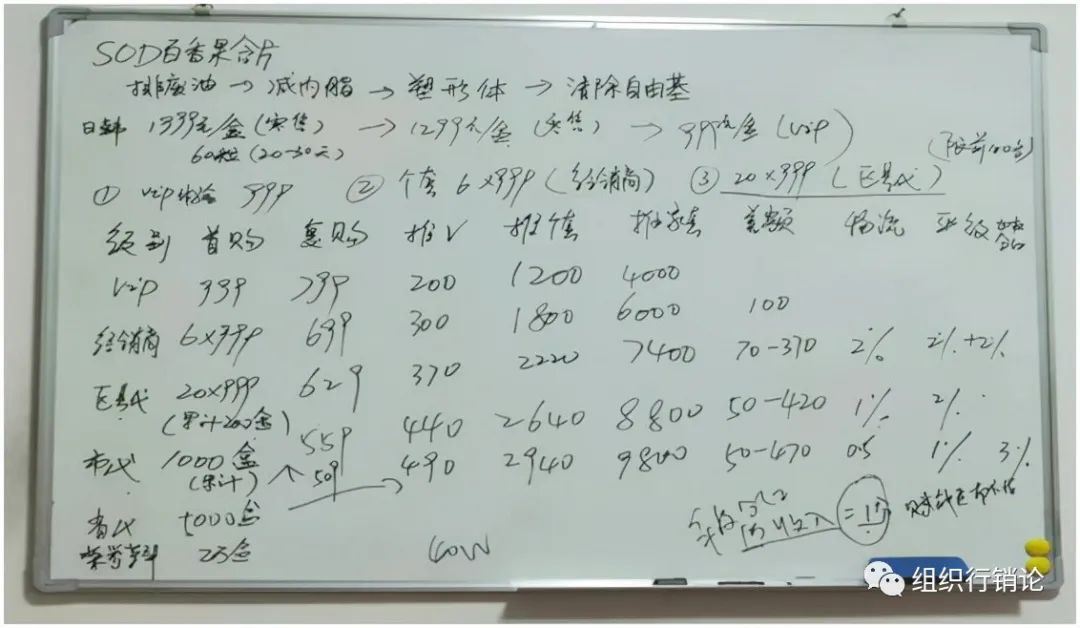 SOD百香果含片
排废油→减内脂→塑形体→清除自由基
日韩 1399元/盒(实售)→1299元/盒(实售)→999元/盒(Vip)
60粒(20-30天) (限前100名)
① Vip体验 999 ② 个套 6×999(经销商) ③ 20×999(区县代)
级别 首购 惠购 推V 推个套 推套 差额 物流 平级
Vip 999 799 200 1200 4000
经销商 6×999 699 300 1800 6000 100
区县代 20×999 629 370 2220 7400 70-370 2% 2%+2%
(累计200盒) 559 440 2640 8800 50-420 1% 2%
市代 1000盒 509 490 2940 9800 50-470 0.5 1% 3%
(累计)
省代 5000盒
荣誉董事 2万盒
60W
=1个
组织行销论